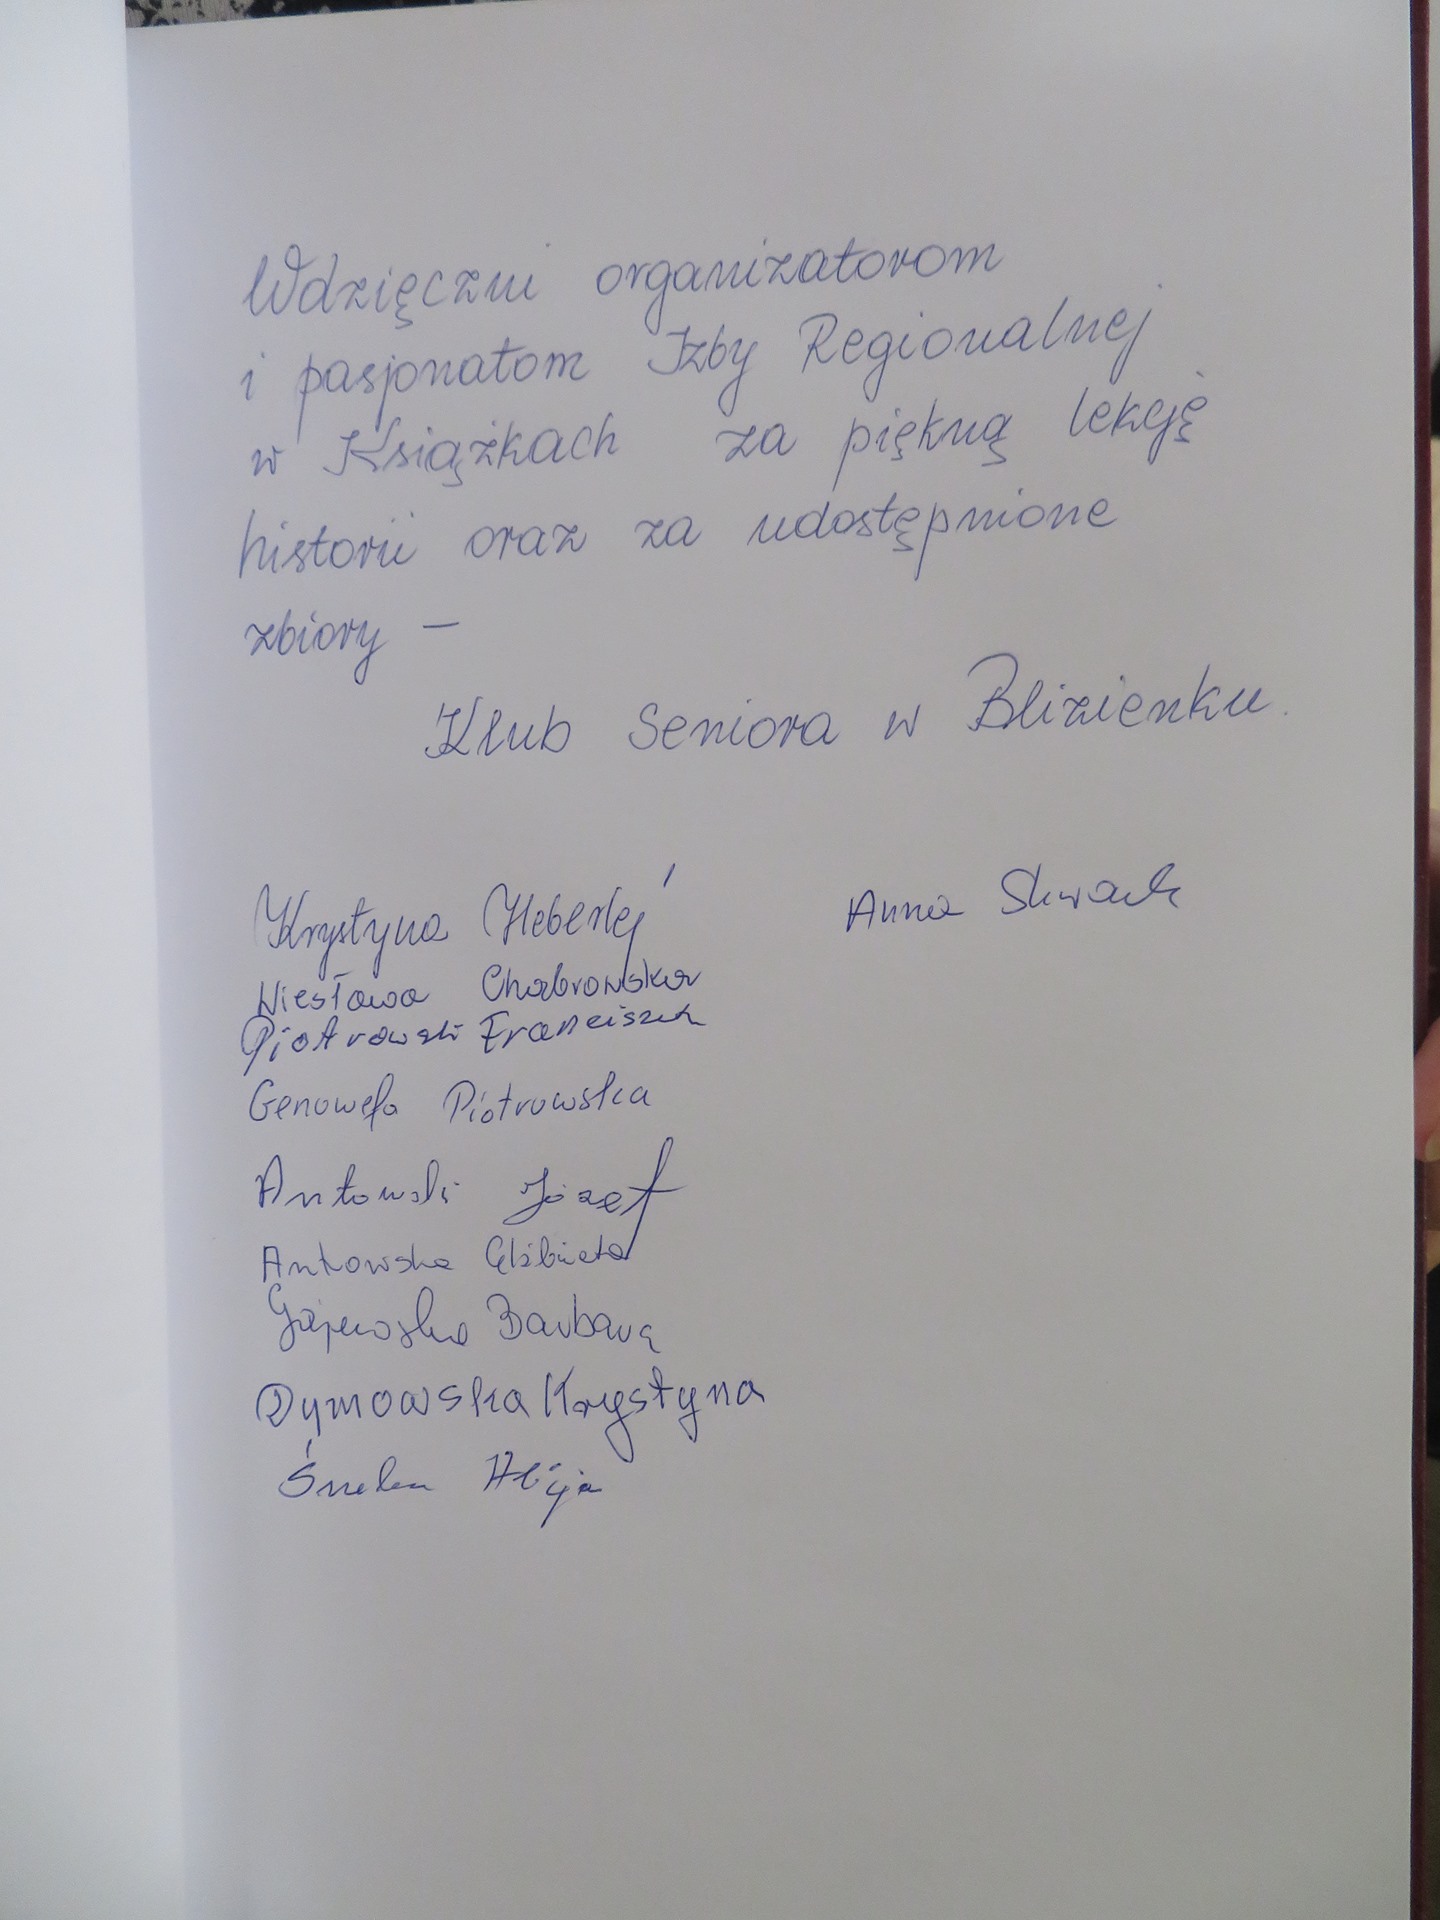 Wdzięczni organizatorom
i pasjonatom Izby Regionalnej
w Książkach za piękną lekcję
historii oraz za udostępnione
zbiory –
Klub Seniora w Blizienku.
Krystyna Heberlej
Anna
Wiesława Chabrowska
Piotrowski Franciszek
Genowefa Piotrowska
Antowski Józef
Antowska Elżbieta
Gajewska Barbara
Dymowska Krystyna
Alicja